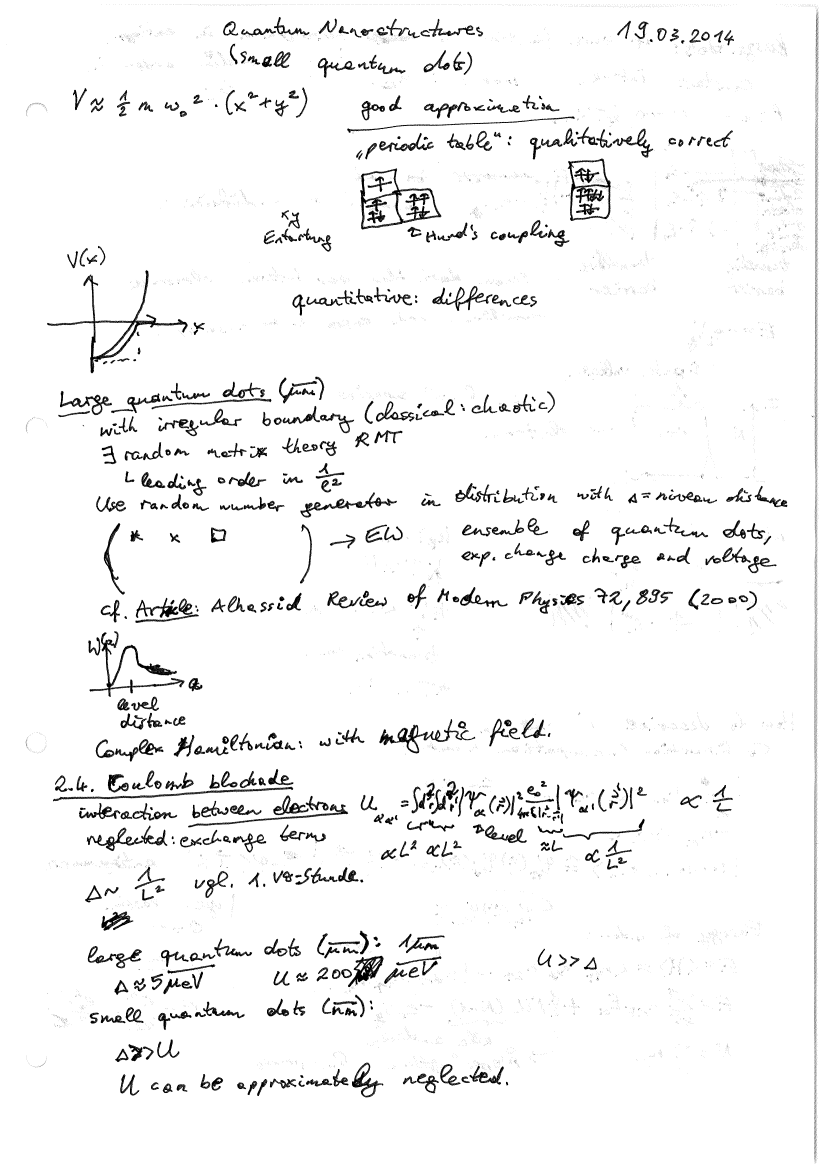 Quantum Nanostructures 19.03.2014
(small quantum dots)
V ≈ 1/2 m ω₀² · (x²+y²) good approximation
„periodic table“: qualitatively correct
xy
Entartung Hund's coupling
V(x)
x
quantitative: differences
Large quantum dots (μm)
with irregular boundary (classical: chaotic)
∃ random matrix theory RMT
└ leading order in
Use random number generator in distribution with Δ = niveau distance
( * x □ ) → EW ensemble of quantum dots,
exp. change charge and voltage
cf. Article: Alhassid Review of Modern Physics 72, 895 (2000)
level
distance
Complex Hamiltonian: with magnetic field.
2.4. Coulomb blockade
interaction between electrons U_αα' = ∫d²r ∫d²r' |ψ_α(r⃗)|² e₀²/4πε|r⃗-r⃗'| |ψ_α'(r⃗')|² ∝ 1/L
neglected: exchange terms ∝L² ∝L² level ≈L ∝ 1/L²
Δ ~ 1/L² vgl. 1. VB-Stunde.
large quantum dots (μm): 1μm
Δ ≈ 5 μeV U ≈ 200 μeV U >> Δ
small quantum dots (nm):
Δ >> U
U can be approximately neglected.